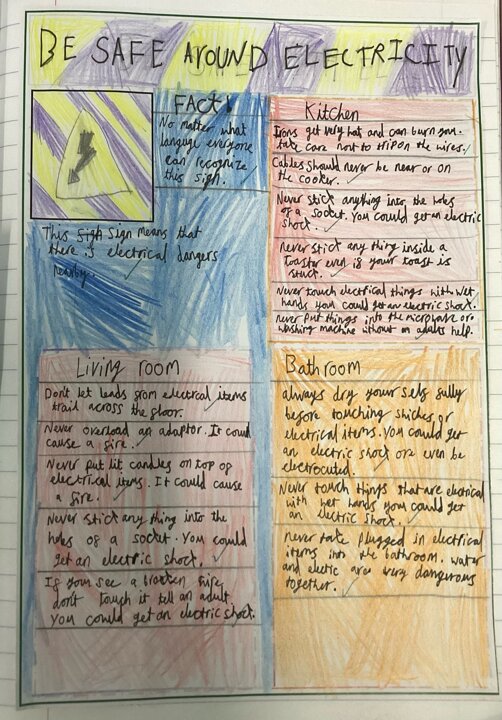 BE SAFE AROUND ELECTRICITY
FACT!
No matter what
language everyone
can recognize
this sign.
This sign means that
there is electrical dangers
nearby.
Kitchen
Irons get very hot and can burn you.
take care not to trip on the wires.
Cables should never be near or on
the cooker.
Never stick anything into the holes
of a socket. You could get an electric
shock.
never stick any thing inside a
toaster even if your toast is
stuck.
Never touch electrical things with wet
hands you could get an electric shock.
never put things into the microwave or
washing machine without an adults help.
Living room
Don't let leads from electrical items
trail across the floor.
Never overload an adaptor. It could
cause a fire.
Never put lit candles on top of
electrical items. It could cause
a fire.
Never stick any thing into the
holes of a socket. You could
get an electric shock.
If you see a broken
dont touch it tell an adult
you could get an electric shock.
Bathroom
always dry your self fully
before touching or
electrical items. You could get
an electric shock or even be
electrocuted.
Never touch things that are electrical
with wet hands you could get
an electric shock.
never take plugged in electrical
items into the bathroom. water
and electic are very dangerous
together.